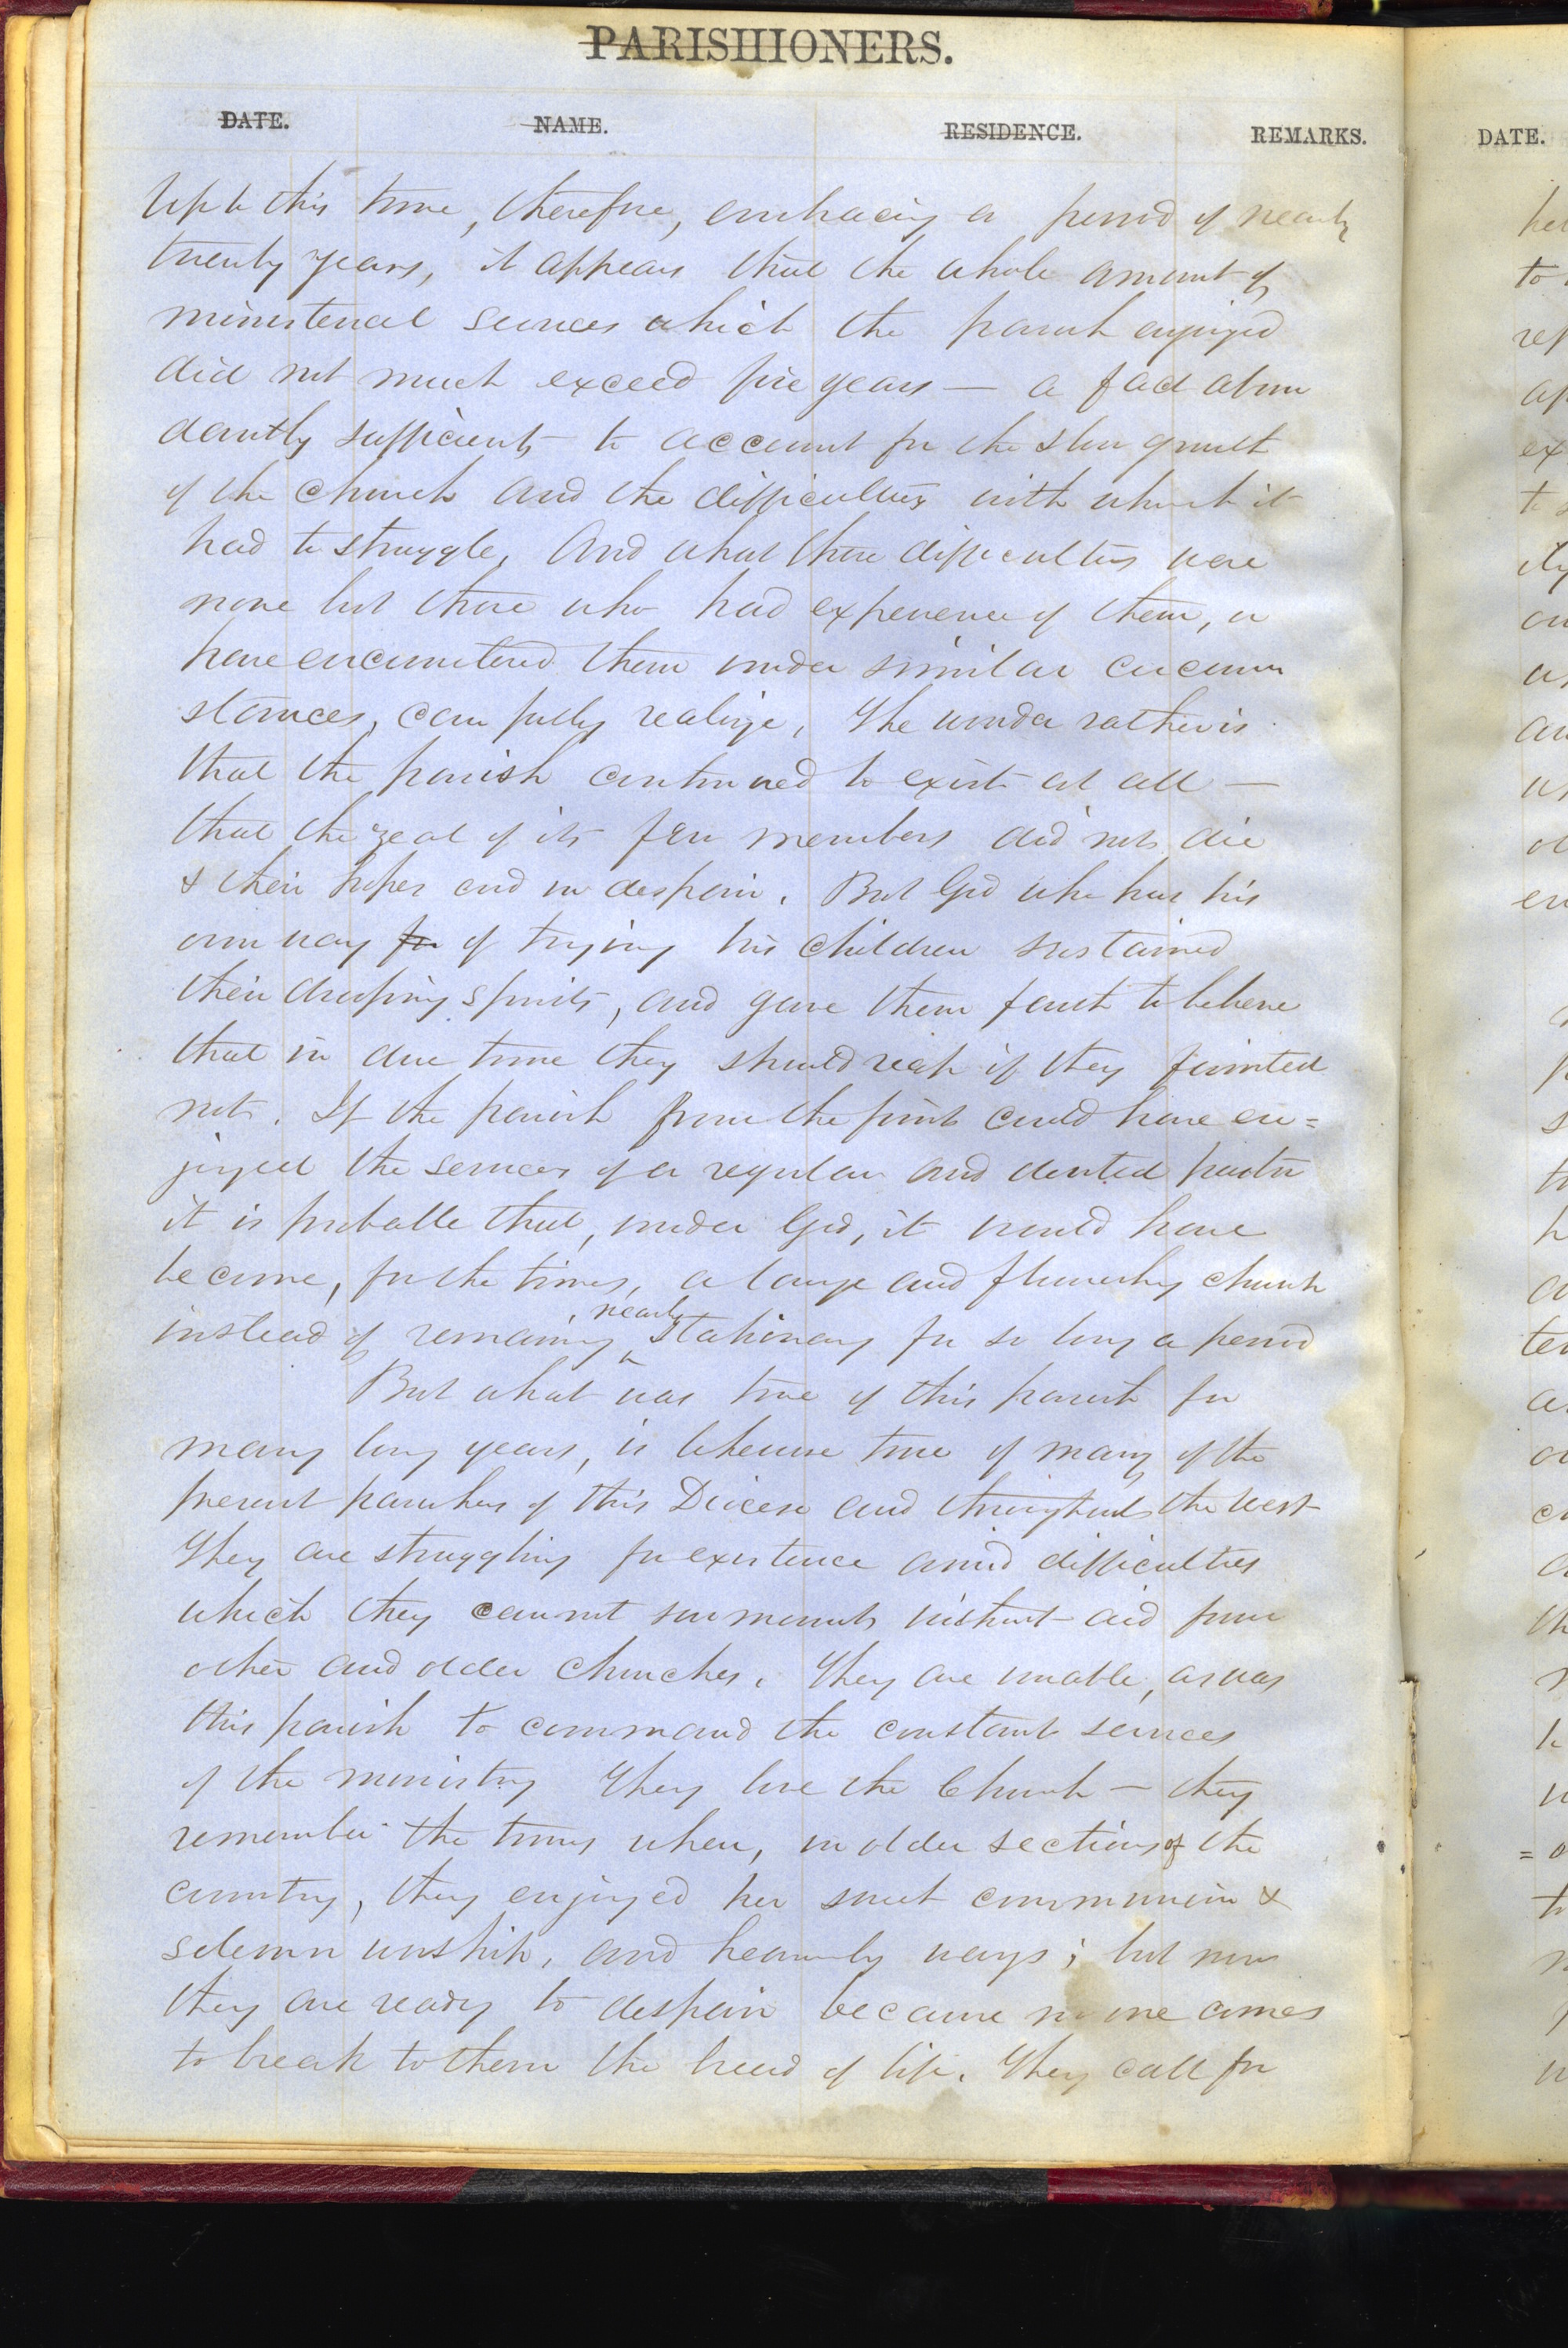 PARISHIONERS.
DATE. NAME. RESIDENCE. REMARKS.
Up to this time, therefore, embracing a period of nearly
twenty years, it appears that the whole amount of
ministerial services which the parish enjoyed
did not much exceed five years — a fact abun
dantly sufficient to account for the slow growth
of the church and the difficulties with which it
had to struggle. And what those difficulties were
none but those who had experience of them, or
have encountered them under similar circum
stances, can fully realize. The wonder rather is
that the parish continued to exist at all —
that the zeal of its few members did not die
& their hopes end in despair. But God who has his
own way for of trying his children sustained
their drooping spirits, and gave them faith to believe
that in due time they should reap if they fainted
not. If the parish from the first could have en=
joyed the services of a regular and devoted pastor
it is probable that, under God, it would have
become, for the times, a large and flourishing church
instead of remaining nearly stationary for so long a period
But what was true of this parish for
many long years, is likewise true of many of the
present parishes of this Diocese and throughout the west
They are struggling for existence amid difficulties
which they cannot surmount without aid from
other and older churches. They are unable, as was
this parish to command the constant services
of the ministry They love the Church — they
remember the times when, in older sections of the
country, they enjoyed her sweet communion &
solemn worship, and heavenly ways; but now
they are ready to despair because no one comes
to break to them the bread of life. They call for
DATE.